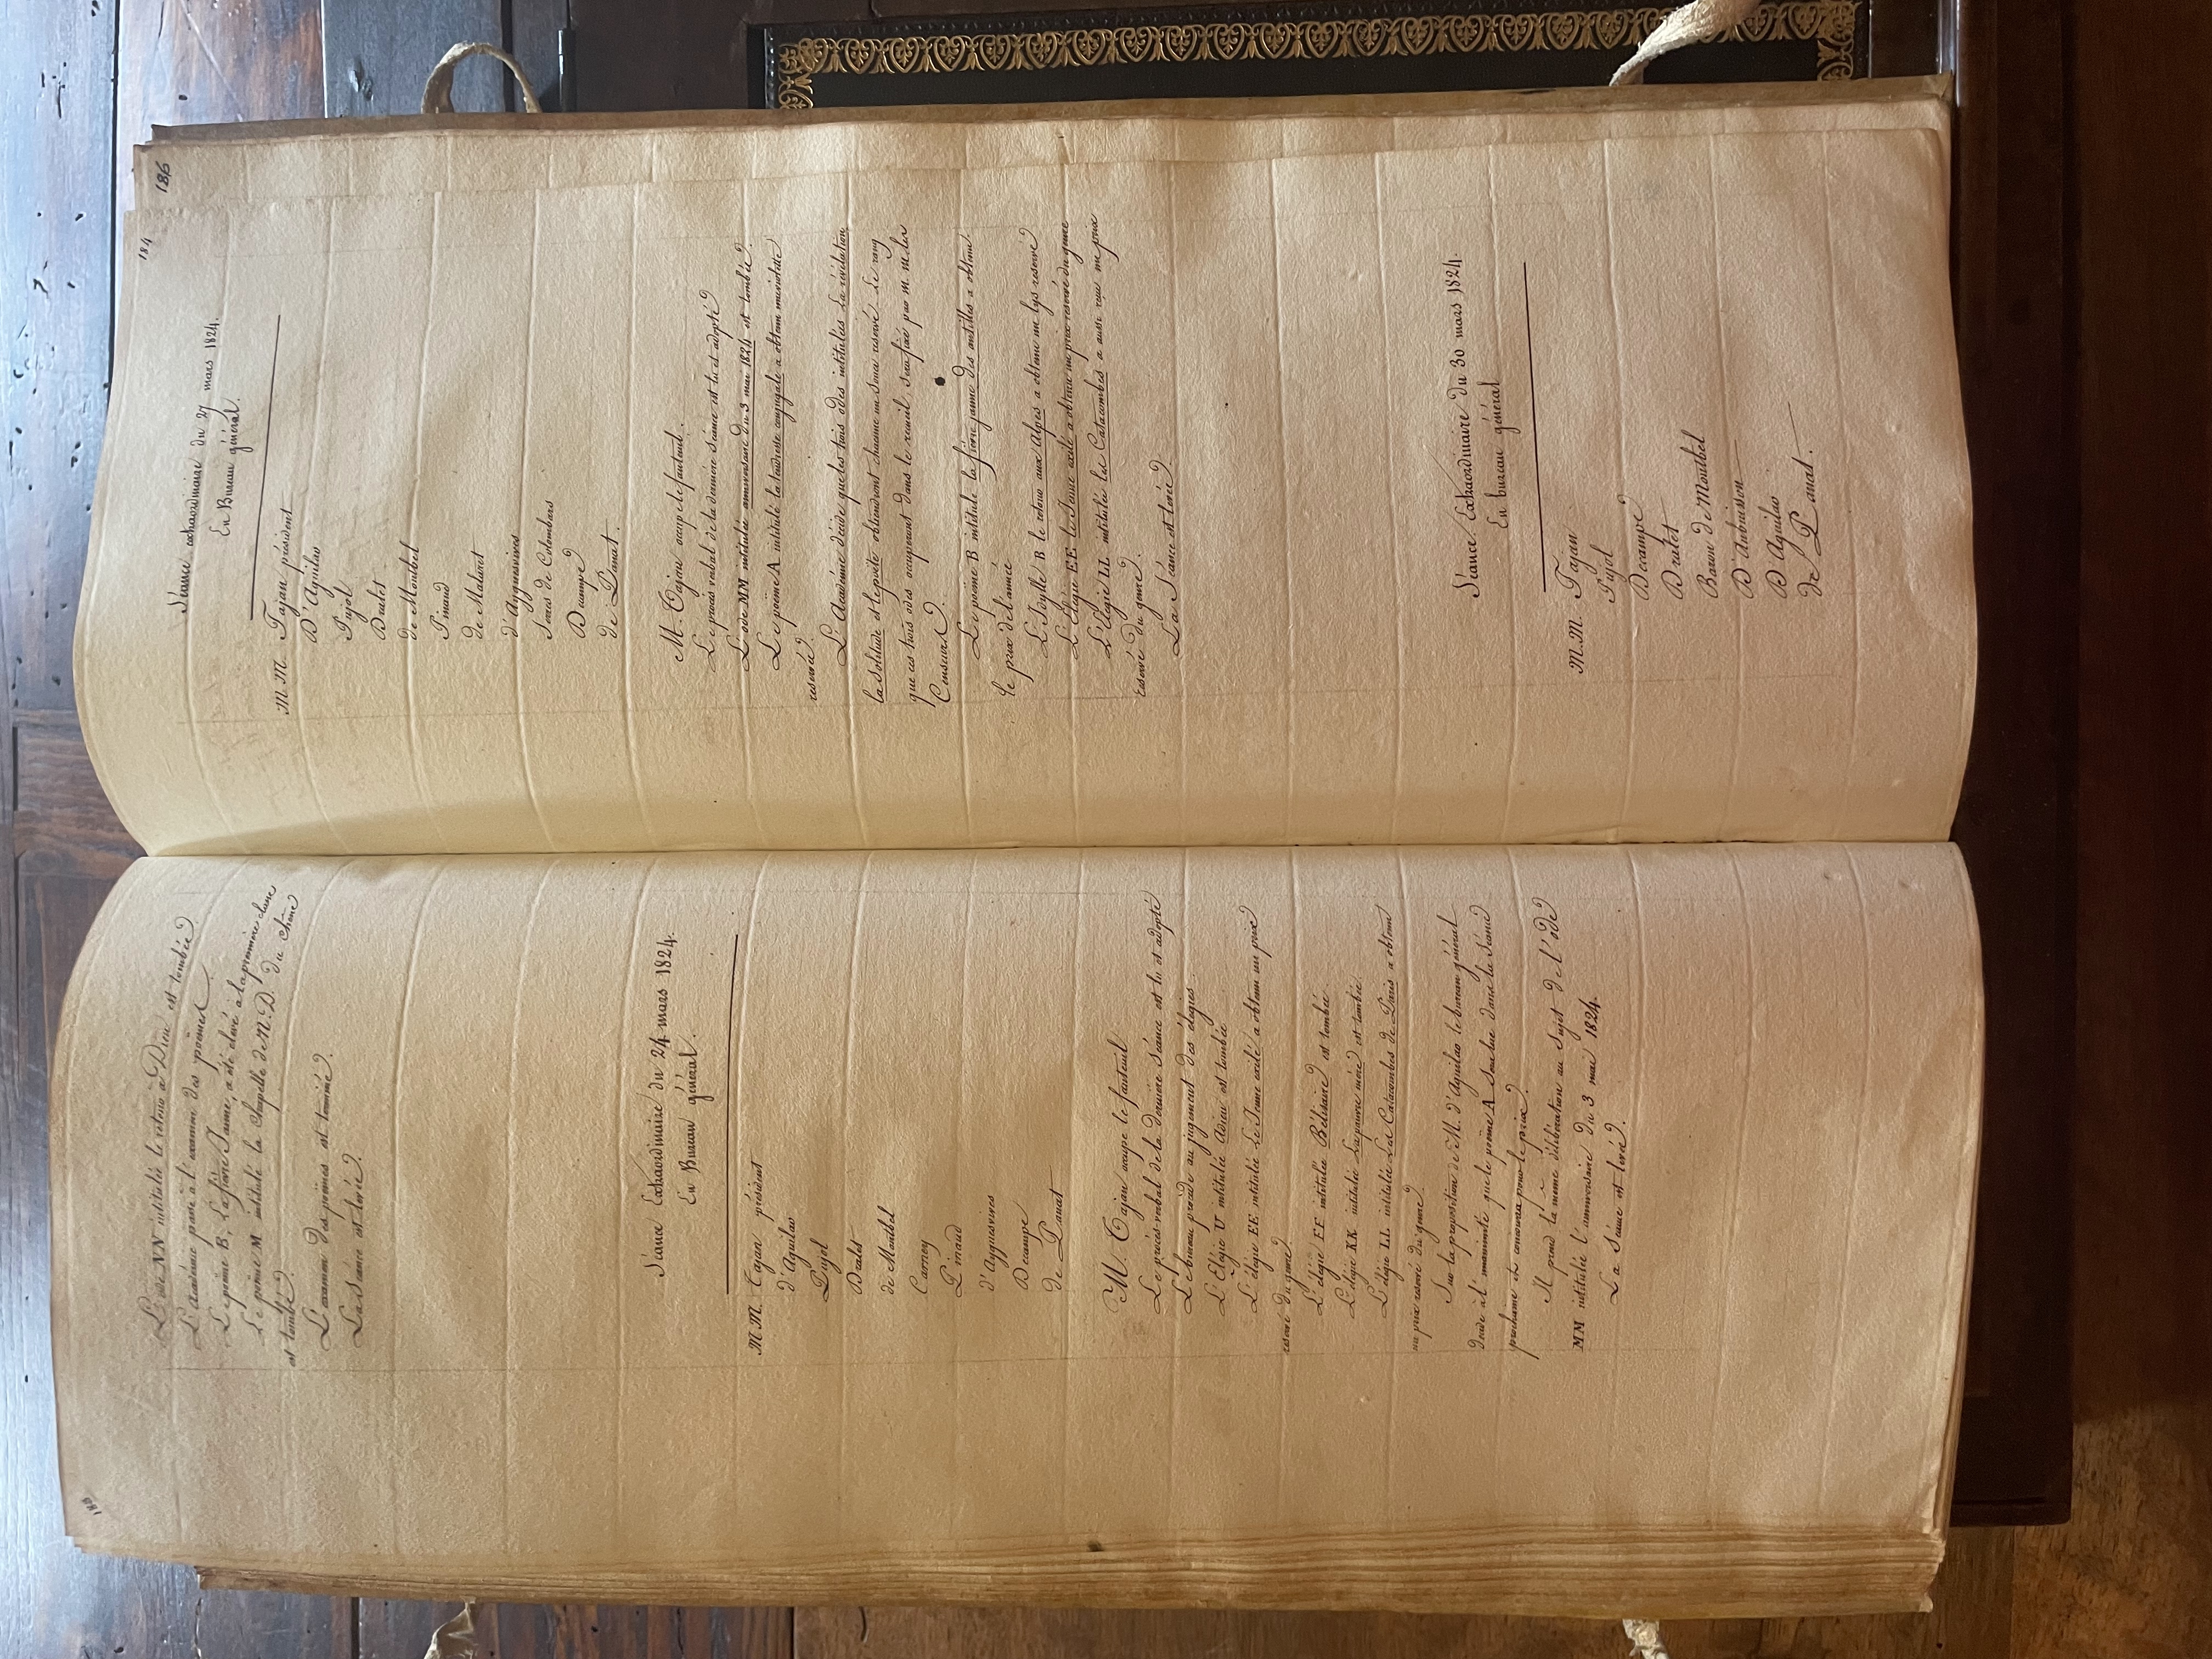 L'ode NN intitulée le retour à Dieu est tombée.
L'académie passe à l'examen des poëmes.
Le poëme B, la fièvre Jaune, a été élevé à la première classe
Le poëme M intitulé la Chapelle de N. D. du chêne
est tombé.
L'examen des poëmes est terminé.
La Séance est levée.
Séance Extraordinaire du 24 mars 1824.
En Bureau général.
MM. Tajan président
d'Aguilar
Pujol
Dralet
de Montbel
Carney
Pinaud
d'Ayguesvives
Decampe
de Panat
M. Tajan occupe le fauteuil
Le procès verbal de la dernière séance est lu et adopté
Le bureau procède au jugement des élégies.
L'Élégie U intitulée Adieu est tombée
L'élégie EE intitulée Le Jeune exilé a obtenu un prix
réservé du genre.
L'élégie FF intitulée Bélisaire est tombée
L'élégie KK intitulée La pauvre mère est tombée
L'élégie LL intitulée Les Catacombes de Paris a obtenu
un prix réservé du genre.
Sur la proposition de M. d'Aguilar le bureau général
décide à l'unanimité que le poëme A sera lue dans la séance
prochaine et concourra pour le prix.
Il prend la même délibération au sujet de l'ode
MM intitulée l'anniversaire du 3 mai 1824.
La Séance est levée.
184
Séance extraordinaire du 27 mars 1824.
En Bureau général.
MM. Tajan président
D'Aguilar
Pujol
Dralet
de Montbel
Pinaud
de Malaret
d'Ayguesvives
Serres de Colombars
Decampe
de Panat.
M. Tajan occupe le fauteuil.
Le procès verbal de la dernière séance est lu et adopté
L'ode MM intitulée anniversaire du 3 mai 1824 est tombée.
Le poëme A intitulé la tendresse conjugale a obtenu
réservé.
L'Académie décide que les trois odes intitulées La révélation
la Solitude et le poëte obtiendront chacune un Souci réservé. Le rang
que ces trois odes occuperont dans le recueil, sera fixé par m.m. les
Censeurs.
Le poëme B intitulé la fièvre jaune des antilles a obtenu
le prix de l'année
L'Idylle B le retour aux Alpes a obtenu un lys réservé
L'Élégie EE le Jeune exilé a obtenu un prix réservé du genre
L'Élégie LL intitulée les Catacombes a aussi reçu un prix
réservé du genre.
La Séance est levée.
Séance Extraordinaire du 30 mars 1824.
En bureau général
M.M. Tajan
Pujol
Decampe
Dralet
Baron de Montbel
D'Aubuisson
D'Aguilar
de Panat.
186